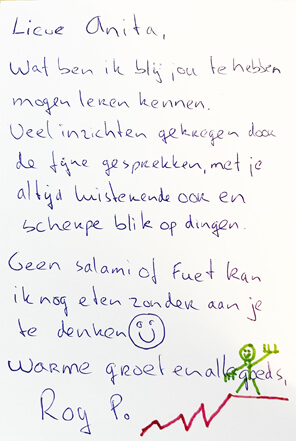 Lieve Anita,
Wat ben ik blij jou te hebben
mogen leren kennen.
Veel inzichten gekregen door
de fijne gesprekken, met je
altijd luisterende oor en
scherpe blik op dingen.
Geen salami of Fuet kan
ik nog eten zonder aan je
te denken
Warme groet en alle goeds,
Roy P.